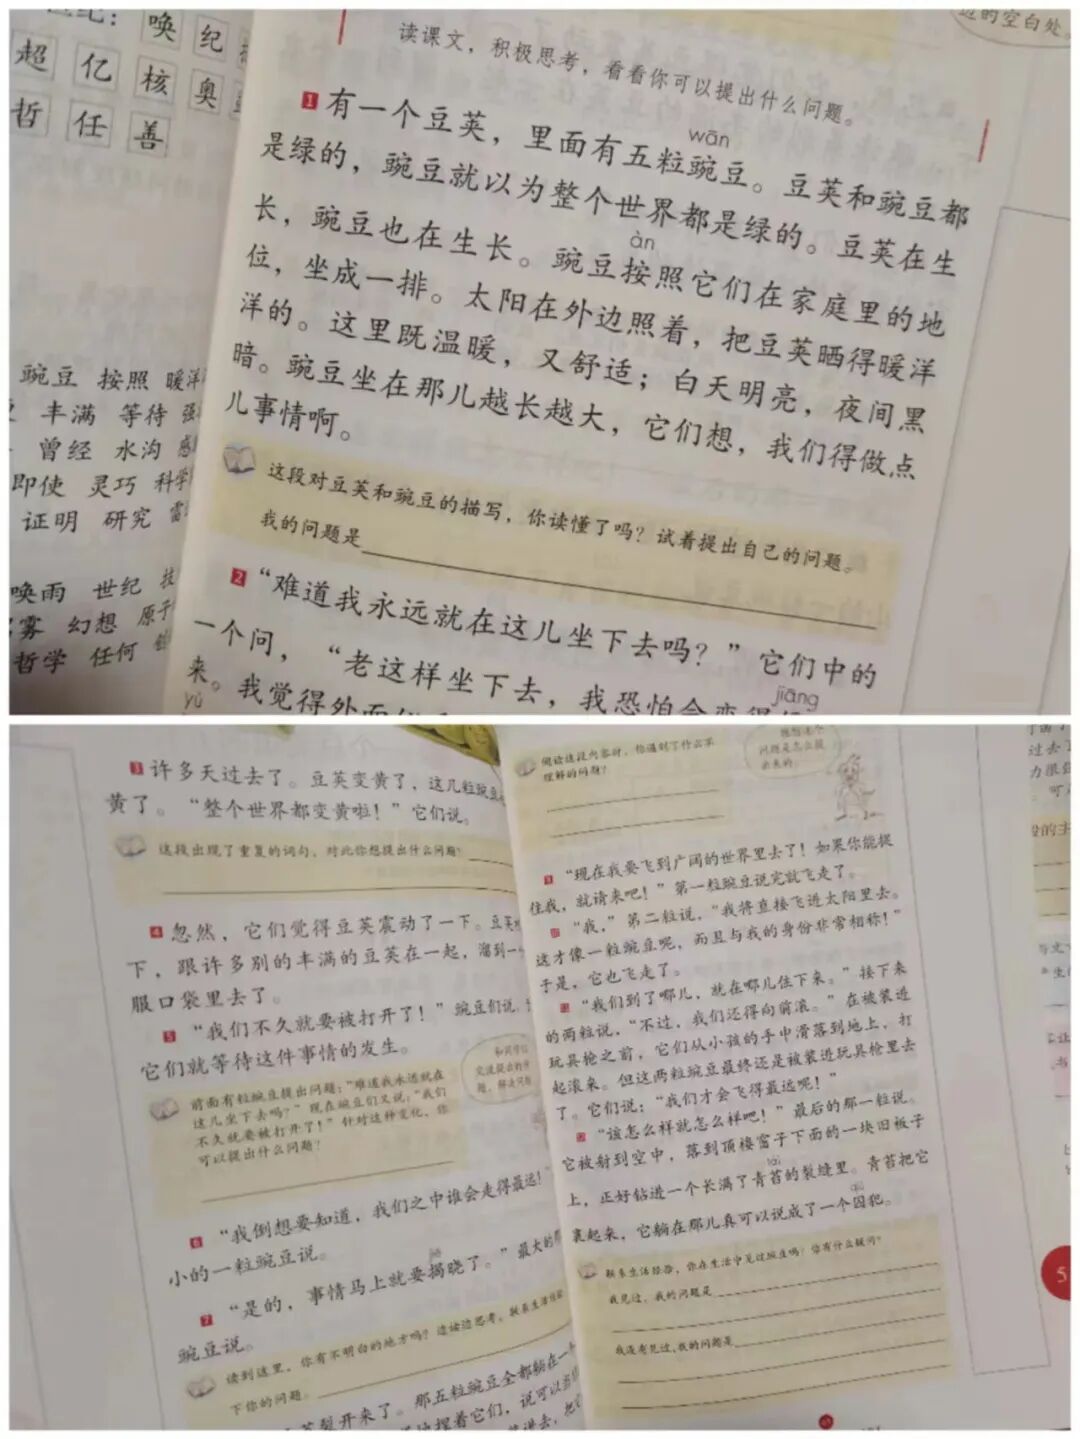 唤 纪
超 亿 核 奥
哲 任 善
豌豆 按照 暖洋
丰满 等待 强
曾经 水沟 感
即使 灵巧 科学
证明 研究 雷
唤雨 世纪 技
雾 幻想 原子
哲学 任何
边的空白处。
读课文，积极思考，看看你可以提出什么问题。
1 有一个豆荚，里面有五粒豌豆。豆荚和豌豆都
wān
是绿的，豌豆就以为整个世界都是绿的。豆荚在生
长，豌豆也在生长。豌豆按照它们在家庭里的地
àn
位，坐成一排。太阳在外边照着，把豆荚晒得暖洋
洋的。这里既温暖，又舒适；白天明亮，夜间黑
暗。豌豆坐在那儿越长越大，它们想，我们得做点
儿事情啊。
这段对豆荚和豌豆的描写，你读懂了吗？试着提出自己的问题。
我的问题是
2 “难道我永远就在这儿坐下去吗？”它们中的
一个问，“老这样坐下去，我恐怕会变得
jiāng
来。我觉得外面
yǔ
3 许多天过去了。豆荚变黄了，这几粒豌豆
黄了。“整个世界都变黄啦！”它们说。
这段出现了重复的词句，对此你想提出什么问题？
4 忽然，它们觉得豆荚震动了一下。豆荚
下，跟许多别的丰满的豆荚在一起，溜到一
服口袋里去了。
5 “我们不久就要被打开了！”豌豆们说，
它们就等待这件事情的发生。
前面有粒豌豆提出问题：“难道我永远就在
这儿坐下去吗？”现在豌豆们又说：“我们
不久就要被打开了！”针对这种变化，你
可以提出什么问题？
6 “我倒想要知道，我们之中谁会走得最远！”
小的一粒豌豆说。
7 “是的，事情马上就要揭晓了。”最大的那
豌豆说。
读到这里，你有不明白的地方吗？边读边思考，联系生活
下你的问题。
裂开来了。那五粒豌豆全都躺在一个
捏着它们，说可以当
阅读这段内容时，你遇到了什么不
理解的问题？
问题是怎么提
出来的。
9 “现在我要飞到广阔的世界里去了！如果你能捉
住我，就请来吧！”第一粒豌豆说完就飞走了。
“我，”第二粒说，“我将直接飞进太阳里去。
这才像一粒豌豆呢，而且与我的身份非常相称！”
于是，它也飞走了。
“我们到了哪儿，就在哪儿住下来。”接下来
的两粒说，“不过，我们还得向前滚。”在被装进
玩具枪之前，它们从小孩的手中滑落到地上，打
起滚来。但这两粒豌豆最终还是被装进玩具枪里去
了。它们说：“我们才会飞得最远呢！”
“该怎么样就怎么样吧！”最后的那一粒说。
它被射到空中，落到顶楼窗子下面的一块旧板子
上，正好钻进一个长满了青苔的裂缝里。青苔把它
裹起来，它躺在那儿真可以说成了一个囚犯。
联系生活经验，你在生活中见过豌豆吗？你有什么疑问？
我见过，我的问题是
我没有见过，我的问题是
5